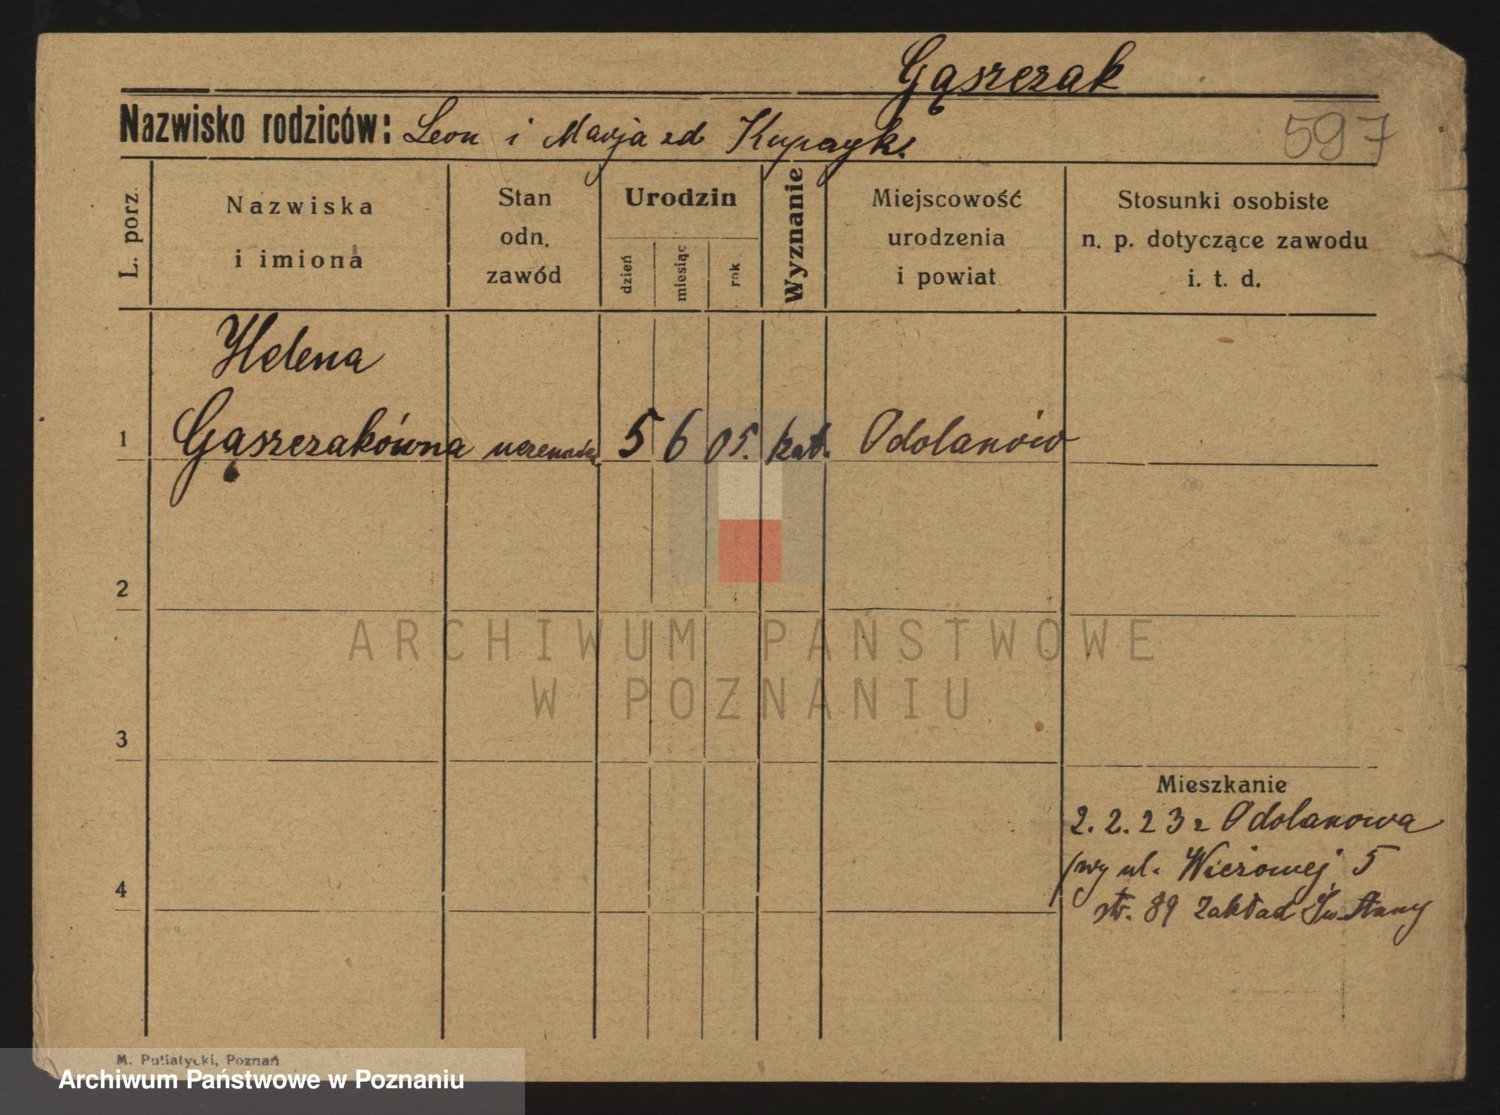 Gąszczak
Nazwisko rodziców: Leon i Marja zd Kupczyk.
597
L. porz.
Nazwiska
i imiona
Stan
odn.
zawód
Urodzin
dzień
miesiąc
rok
Wyznanie
Miejscowość
urodzenia
i powiat
Stosunki osobiste
n. p. dotyczące zawodu
i. t. d.
Helena
1 Gąszczakówna 5 6 05. kat. Odolanów
2
ARCHIWUM PAŃSTWOWE
W POZNANIU
3
Mieszkanie
2.2.23 z Odolanowa
ul. Wieżowej 5
str. 89 Zakład Św. Anny
4
M. Putiatycki, Poznań
Archiwum Państwowe w Poznaniu